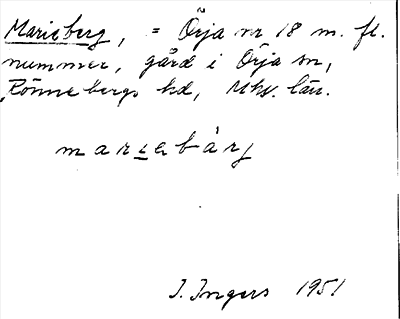 Marieberg, = Örja nr 18 m. fl.
nummer, gård i Örja sn,
Rönnebergs hd, Mhs. län.
marieb̀ärj
I. Ingers 1951